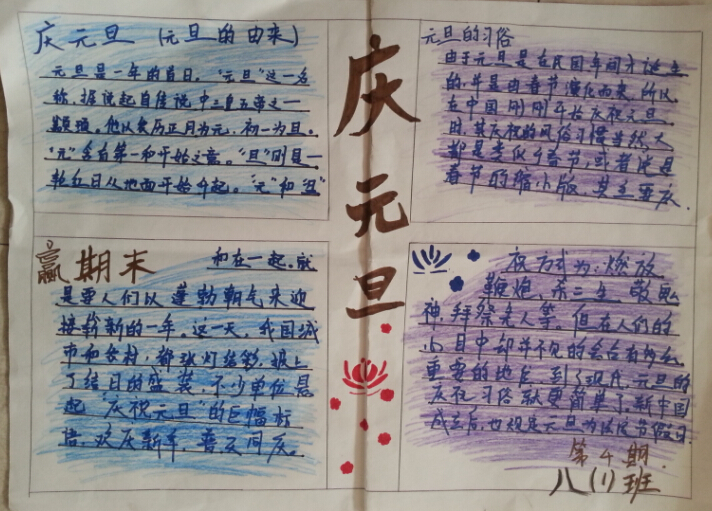 庆元旦 (元旦的由来)
元旦是一年的首日，"元旦"这一名
称，据说起自传说中三皇五帝之一
颛顼。他以农历正月为元，初一为旦。
"元"含有第一和开始之意。"旦"则是一
轮红日从地面开始升起。"元"和"旦"
庆
元
旦
元旦的习俗
由于元旦是在民国年间才诞生
的，并是由春节演化而来，所以
在中国刚刚开始庆祝元旦
时，其庆祝的风俗习惯当然大
都是类似个春节，或者说是
春节的缩小版，其主要庆
赢期末
和在一起，就
是要人们以蓬勃朝气来迎
接新新的一年。这一天，我国城
市和农村，都张灯结彩，娘上
了结日的盛装，不少单位悬
起"庆祝元旦"的巨幅标
语，欢庆新年，普天同庆。
祝方式为：燃放
鞭炮、杀三生、敬鬼
神，拜祭先人等。但在人们的
心目中却并不见的会占有多么
重要的地位，到了现代，元旦的
庆祝习俗就更简单了，新中国
成立后，也规定元旦为法定节假日。
第4期
八(1)班